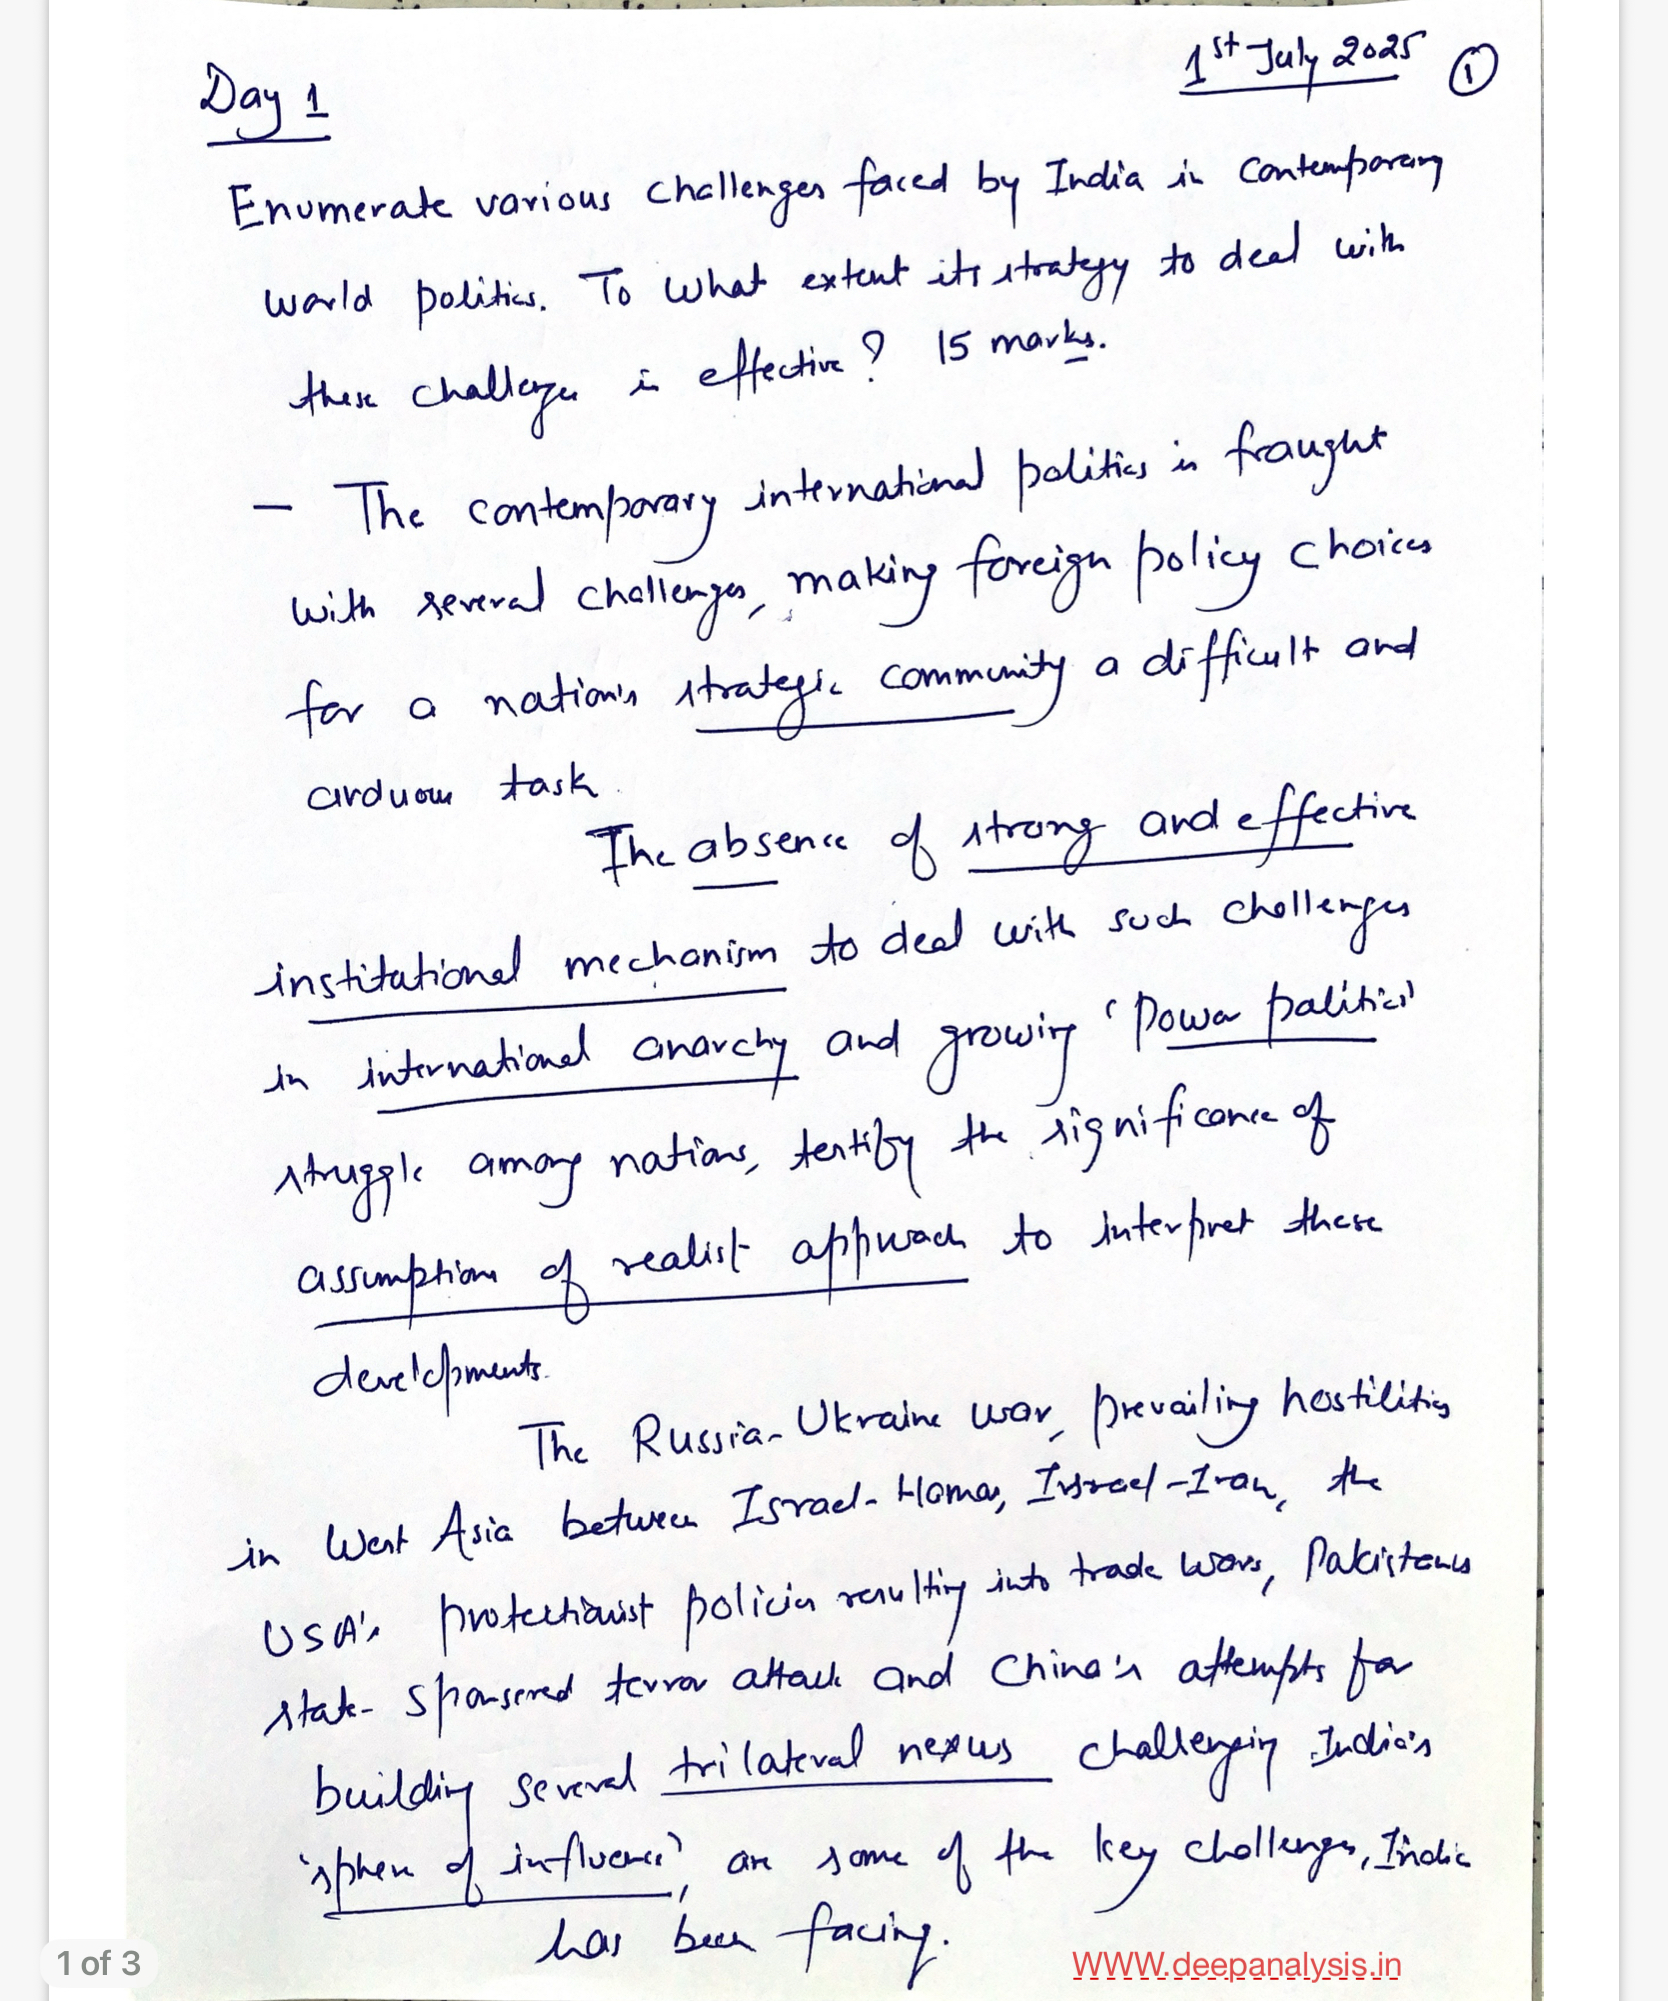 Day 1
1st July 2025 ①
Enumerate various challenges faced by India in contemporary
world politics. To what extent its strategy to deal with
these challenges is effective? 15 marks.
— The contemporary international politics is fraught
with several challenges, making foreign policy choices
for a nation's strategic community a difficult and
arduous task.
The absence of strong and effective
institutional mechanism to deal with such challenges
in international anarchy and growing 'Power politics'
struggle among nations, testify the significance of
assumptions of realist approach to interpret these
developments.
The Russia-Ukraine war, prevailing hostilities
in West Asia between Israel-Hamas, Israel-Iran, the
USA's protectionist policies resulting into trade wars, Pakistan's
state-sponsored terror attack and China's attempts for
building several trilateral nexus challenging India's
'sphere of influence', are some of the key challenges, India
has been facing.
1 of 3
WWW.deepanalysis.in